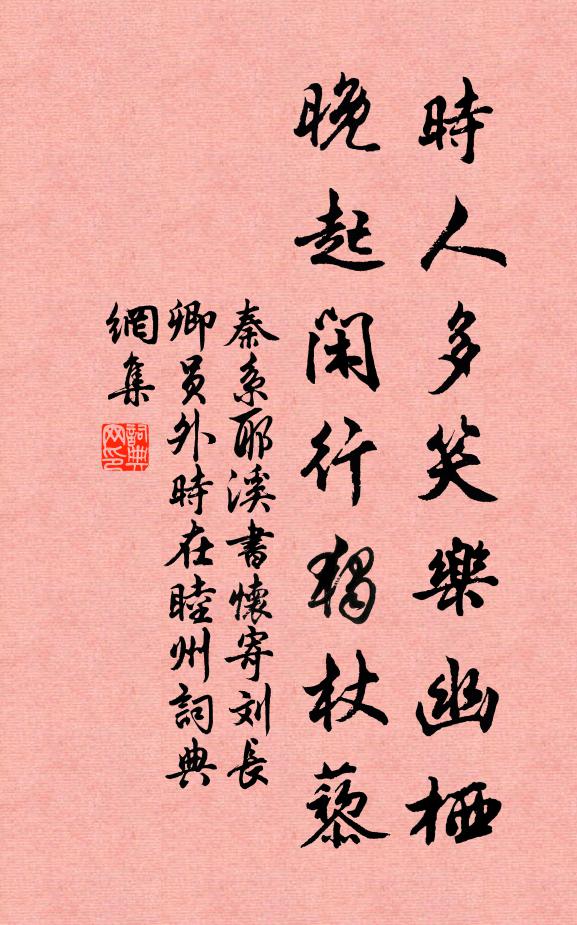 時人多笑樂幽栖
晚起閑行獨杖藜
秦系耶溪書懷寄刘長
卿員外時在睦州詞典
網集
詞典
网印